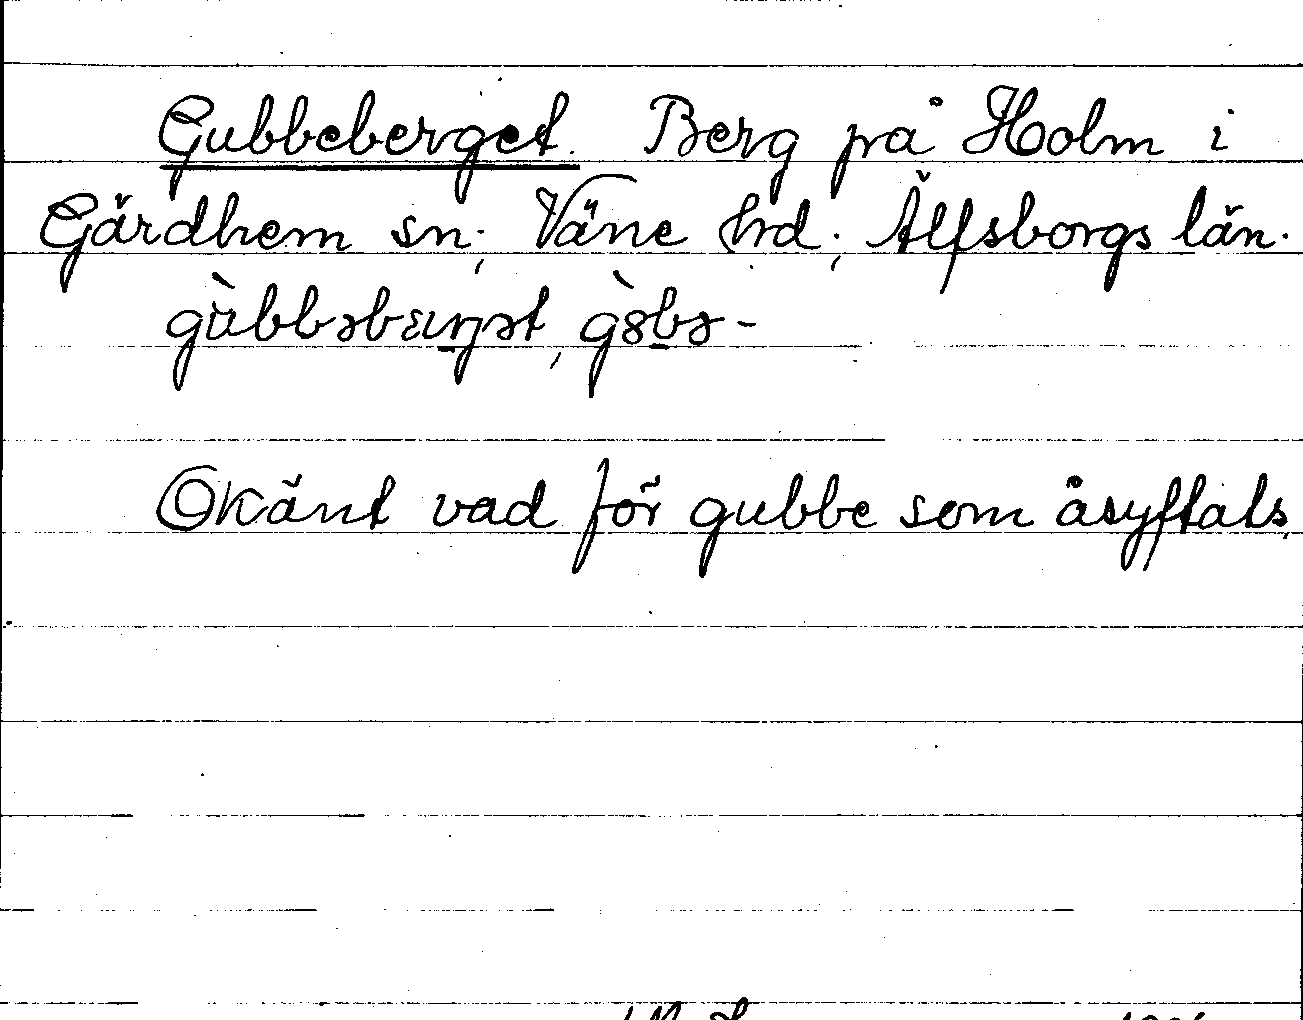 Gubbeberget. Berg på Holm i
Gärdhem sn; Väne hrd; Älfsborgs län.
gùbbəbæŋət, gòbə-
Okänt vad för gubbe som åsyftats.